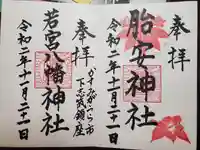 奉拝
胎安神社
令和二年十一月二十一日
奉拝
かすみがうら市
下志筑鎮座
若宮八幡神社
令和二年十一月二十一日